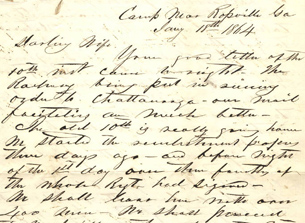 Camp Near Rossville Ga
Jany 18th 1864
Darling Wife
Your good letter of the
10th inst came to night. The
Railway being put in running
order to Chattanooga - our mail
facilities are much better -
The old 10th is really going home
We started the reenlistment
three days ago - and before night
of the 1st day over three fourths of
the whole Regt had signed -
We shall leave here with over